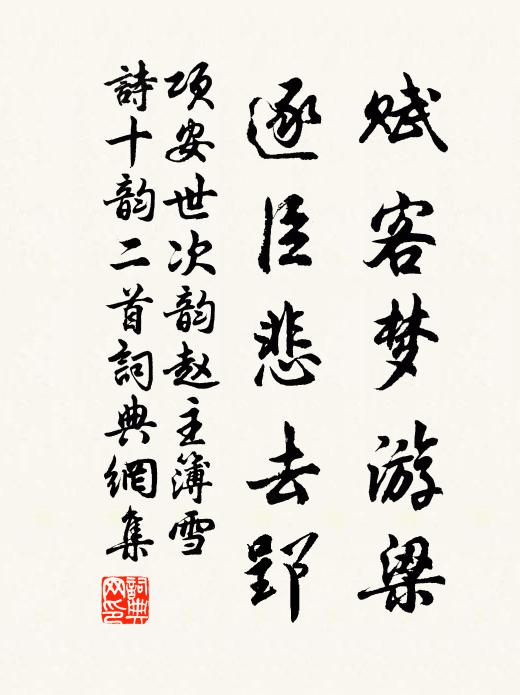 赋客梦游梁
逐臣悲去郢
项安世次韵赵主簿雪
詩十韵二首詞典網集
詞典网印